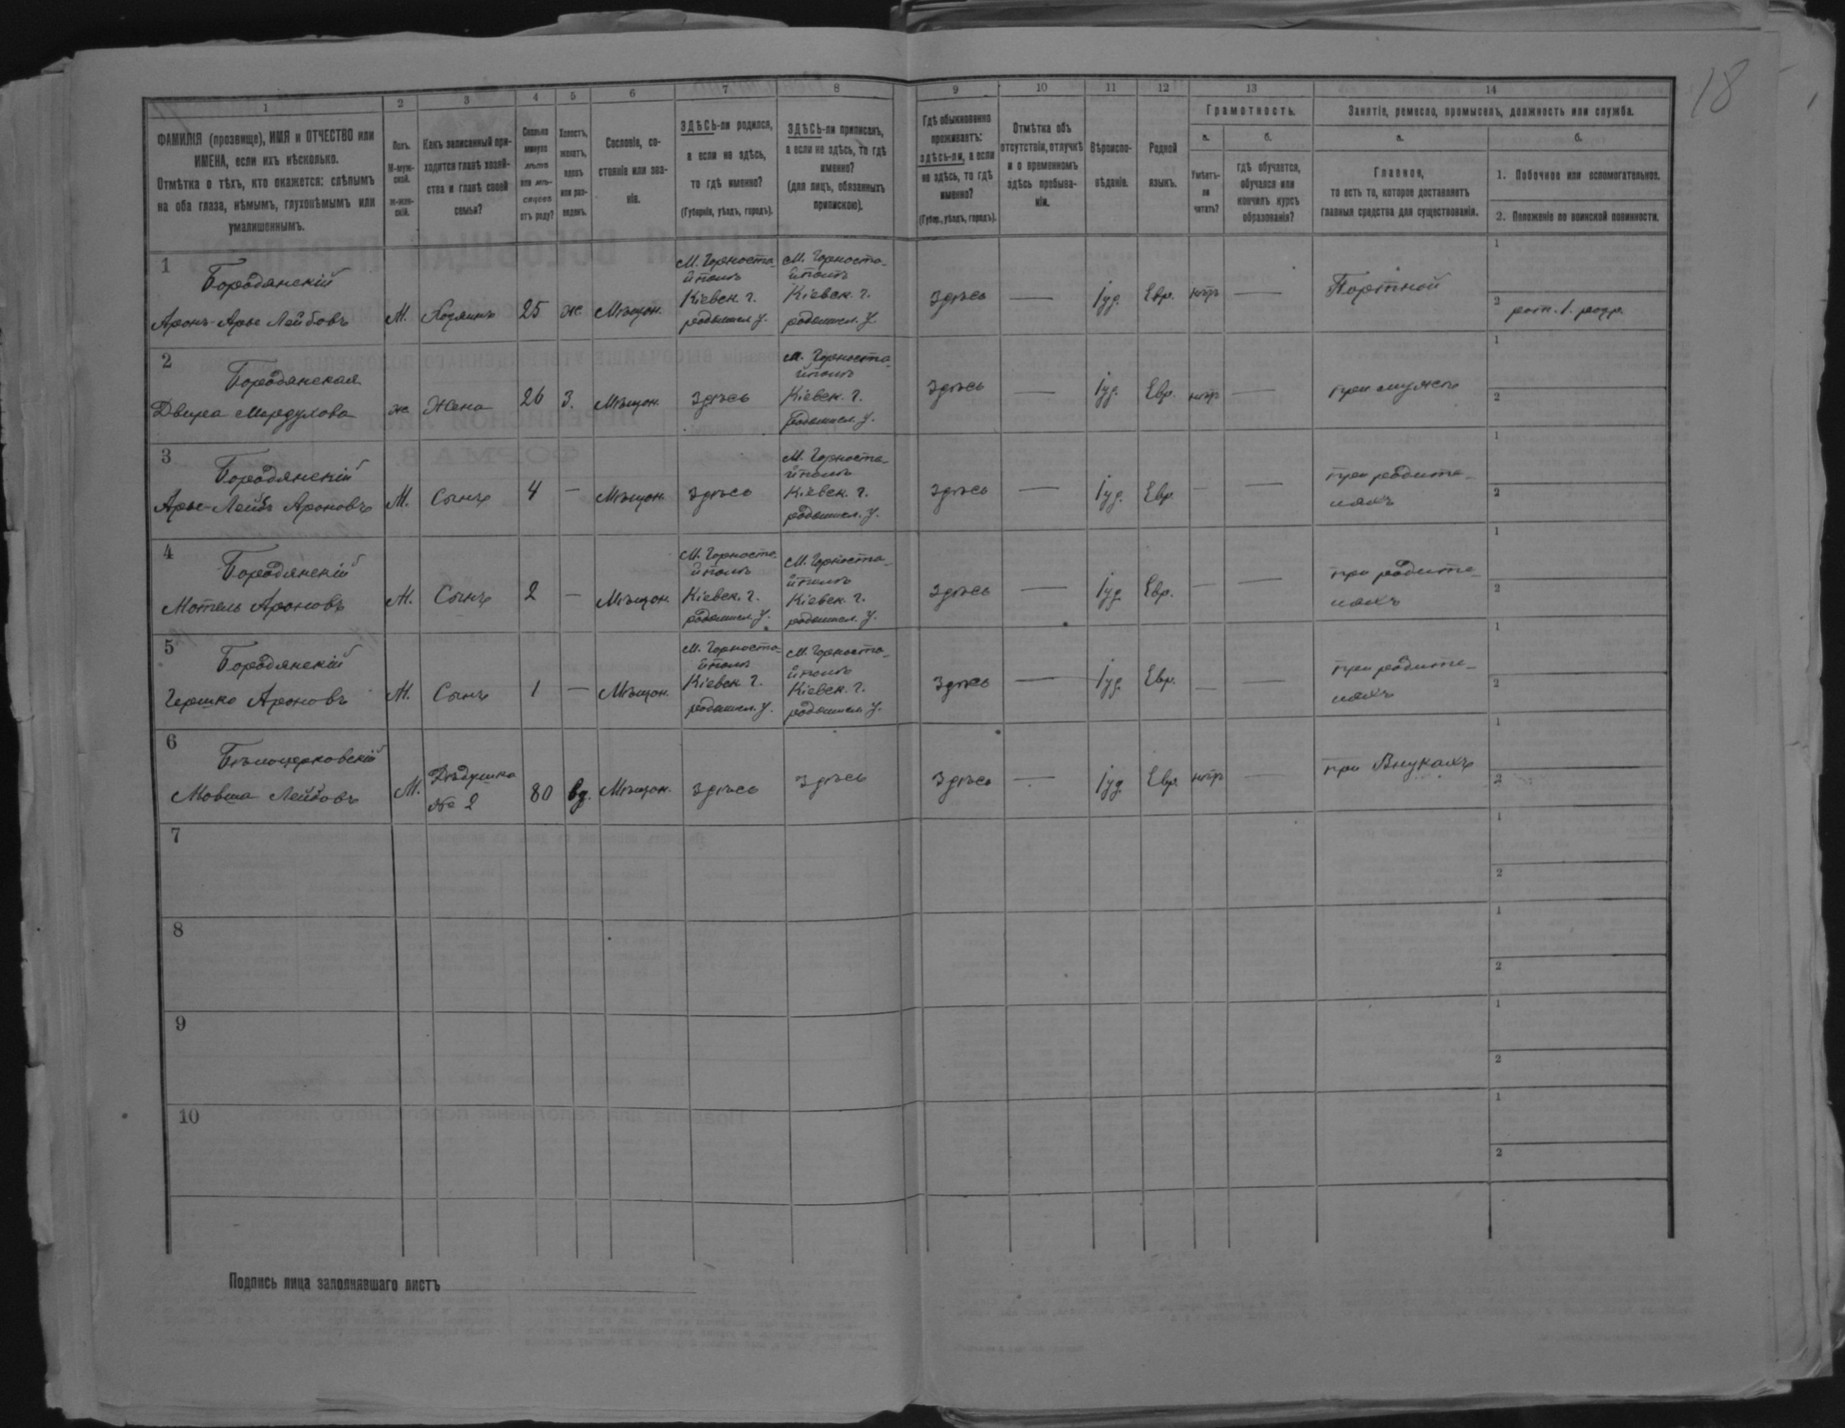 18
1 2 3 4 5 6 7 8 9 10 11 12 13 14
ФАМИЛІЯ (прозвище), ИМЯ и ОТЧЕСТВО или
ИМЕНА, если ихъ нѣсколько.
Отмѣтка о тѣхъ, кто окажется: слѣпымъ
на оба глаза, нѣмымъ, глухонѣмымъ или
умалишеннымъ.
Полъ.
М-муж-
ской.
Ж-жен-
скій.
Какъ записанный при-
ходится главѣ хозяй-
ства и главѣ своей
семьи?
Сколько
минуло
лѣтъ
или мѣ-
сяцевъ
отъ роду?
Холостъ,
женатъ,
вдовъ
или раз-
веденъ.
Сословіе, со-
стояніе или зва-
ніе.
ЗДѢСЬ-ли родился,
а если не здѣсь,
то гдѣ именно?
(Губернія, уѣздъ, городъ).
ЗДѢСЬ-ли приписанъ,
а если не здѣсь, то гдѣ
именно?
(для лицъ, обязанныхъ
припискою).
Гдѣ обыкновенно
проживаетъ:
здѣсь-ли, а если
не здѣсь, то гдѣ
именно?
(Губер., уѣздъ, городъ).
Отмѣтка объ
отсутствіи, отлучкѣ
и о временномъ
здѣсь пребыва-
ніи.
Вѣроиспо-
вѣданіе.
Родной
языкъ.
Грамотность.
а.
Умѣетъ-
ли
читать?
б.
гдѣ обучается,
обучался или
кончилъ курсъ
образованія?
Занятіе, ремесло, промыселъ, должность или служба.
а.
Главное,
то есть то, которое доставляетъ
главныя средства для существованія.
б.
1. Побочное или вспомогательное.
2. Положеніе по воинской повинности.
1 Бородянскій
Аронъ-Арье Лейбовъ М. Хозяинъ 25 ж Мѣщан.
М. Горноста-
йполь
Кіевск. г.
радомысл. у.
М. Горноста-
йполь
Кіевск. г.
радомысл. у.
здѣсь — Іуд. Евр. нѣтъ — Портной
1
2
2 Бородянская
Двыра жена 26 З. Мѣщан. здѣсь
М. Горноста-
йполь
Кіевск. г.
Радомысл. у.
здѣсь — Іуд. Евр. нѣтъ — при мужѣ
1
2
3 Бородянскій
Арье-Лейбъ Ароновъ М. Сынъ 4 — Мѣщан. здѣсь
М. Горноста-
йполь
Кіевск. г.
радомысл. у.
здѣсь — Іуд. Евр. — — при родите-
ляхъ
1
2
4 Бородянскій
Мотель Ароновъ М. Сынъ 2 — Мѣщан.
М. Горноста-
йполь
Кіевск. г.
радомысл. у.
М. Горноста-
йполь
Кіевск. г.
радомысл. у.
здѣсь — Іуд. Евр. — — при родите-
ляхъ
1
2
5 Бородянскій
Гершко Ароновъ М. Сынъ 1 — Мѣщан.
М. Горноста-
йполь
Кіевск. г.
радомысл. у.
М. Горноста-
йполь
Кіевск. г.
радомысл. у.
здѣсь — Іуд. Евр. — — при родите-
ляхъ
1
2
6 Бѣлоцерковскій
Мовша Лейбовъ М. Дѣдушка
№ 2
80 вд. Мѣщан. здѣсь здѣсь здѣсь — Іуд. Евр. нѣтъ — при Внукахъ
1
2
7
1
2
8
1
2
9
1
2
10
1
2
Подпись лица заполнявшаго листъ